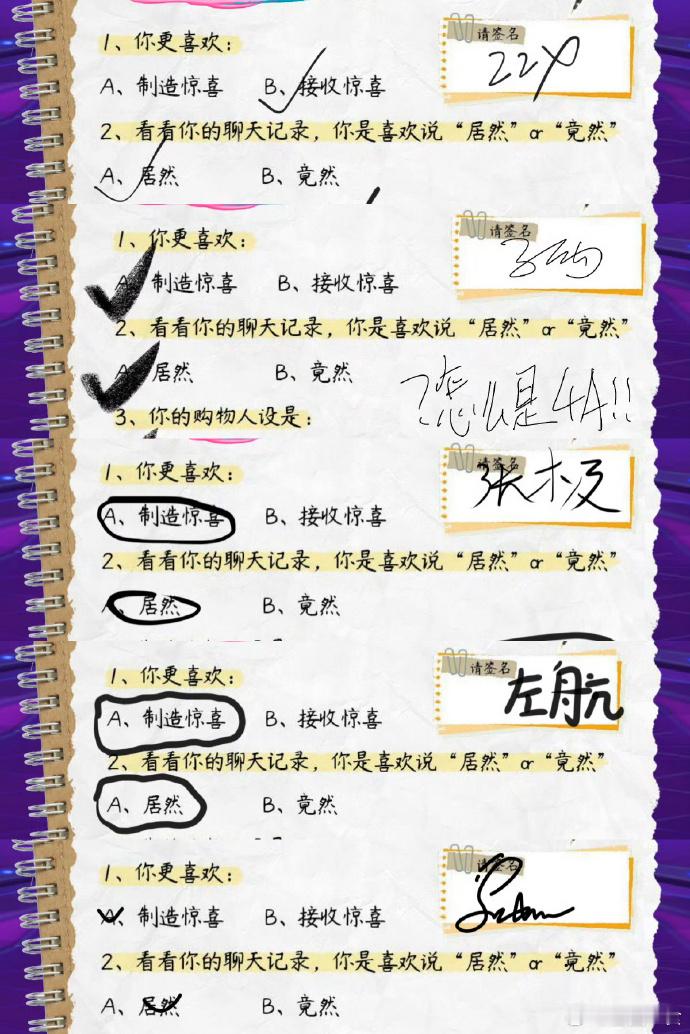 1、你更喜欢：
请签名
ZZX
A、制造惊喜 B、接收惊喜
2、看看你的聊天记录，你是喜欢说“居然”or“竟然”
A、居然 B、竟然
1、你更喜欢：
请签名
A、制造惊喜 B、接收惊喜
2、看看你的聊天记录，你是喜欢说“居然”or“竟然”
A、居然 B、竟然
？怎么是4A!!
3、你的购物人设是：
1、你更喜欢：
请签名
张极
A、制造惊喜 B、接收惊喜
2、看看你的聊天记录，你是喜欢说“居然”or“竟然”
A、居然 B、竟然
1、你更喜欢：
请签名
左航
A、制造惊喜 B、接收惊喜
2、看看你的聊天记录，你是喜欢说“居然”or“竟然”
A、居然 B、竟然
1、你更喜欢：
请签名
A、制造惊喜 B、接收惊喜
2、看看你的聊天记录，你是喜欢说“居然”or“竟然”
A、居然 B、竟然